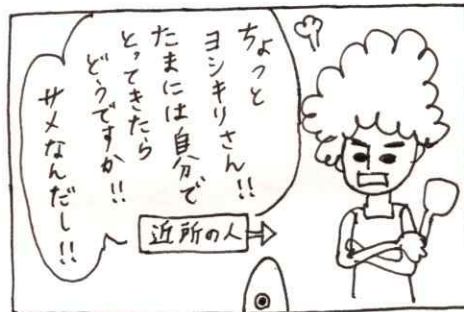 ちょっと
ヨシキリさん!!
たまには自分で
とってきたら
どうですか!!
サメなんだし!!
近所の人